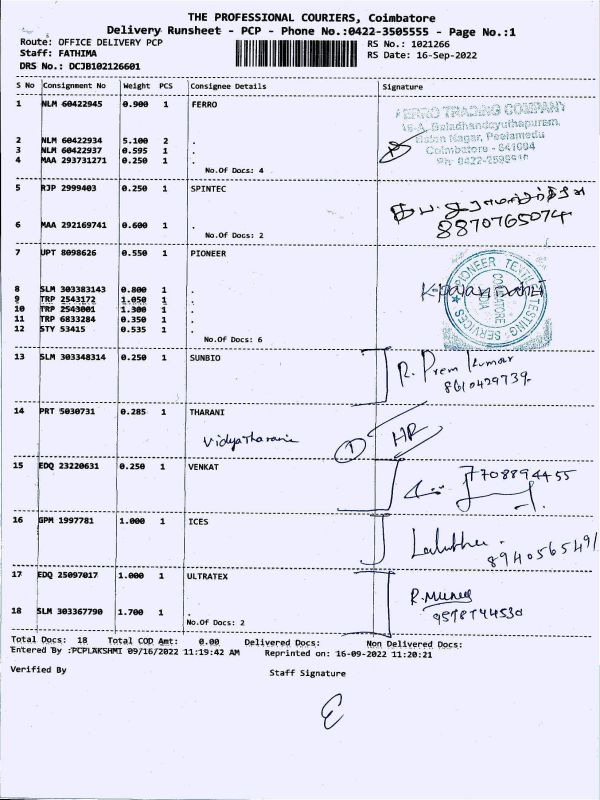 THE PROFESSIONAL COURIERS, Coimbatore
Delivery Runsheet - PCP - Phone No.:0422-3505555 - Page No.:1
Route: OFFICE DELIVERY PCP RS No.: 1021266
Staff: FATHIMA RS Date: 16-Sep-2022
DRS No.: DCJB102126601
S No Consignment No Weight PCS Consignee Details Signature
1 NLM 60422945 0.900 1 FERRO
FERRO TRADING COMPANY
2 NLM 60422934 5.100 2 .
3 NLM 60422937 0.595 1 .
Nagar, Peelamedu
4 MAA 293731271 0.250 1 .
Coimbatore - 641004
No.Of Docs: 4
5 RJP 2999403 0.250 1 SPINTEC
8870765074
6 MAA 292169741 0.600 1 .
No.Of Docs: 2
7 UPT 8098626 0.550 1 PIONEER
PIONEER TEXTILE TESTING SERVICES
COIMBATORE
8 SLM 303383143 0.800 1 .
9 TRP 2543172 1.050 1 .
10 TRP 2543001 1.300 1 .
11 TRP 6833284 0.350 1 .
12 STY 53415 0.535 1 .
No.Of Docs: 6
13 SLM 303348314 0.250 1 SUNBIO
R. Prem Kumar
8610429739
14 PRT 5030731 0.285 1 THARANI
Vidyatharani 1 HR
15 EDQ 23220631 0.250 1 VENKAT
7708894455
16 GPM 1997781 1.000 1 ICES
8940565491
17 EDQ 25097017 1.000 1 ULTRATEX
18 SLM 303367790 1.700 1 .
No.Of Docs: 2
Total Docs: 18 Total COD Amt: 0.00 Delivered Docs: Non Delivered Docs:
Entered By :PCPLAKSHMI 09/16/2022 11:19:42 AM Reprinted on: 16-09-2022 11:20:21
Verified By Staff Signature